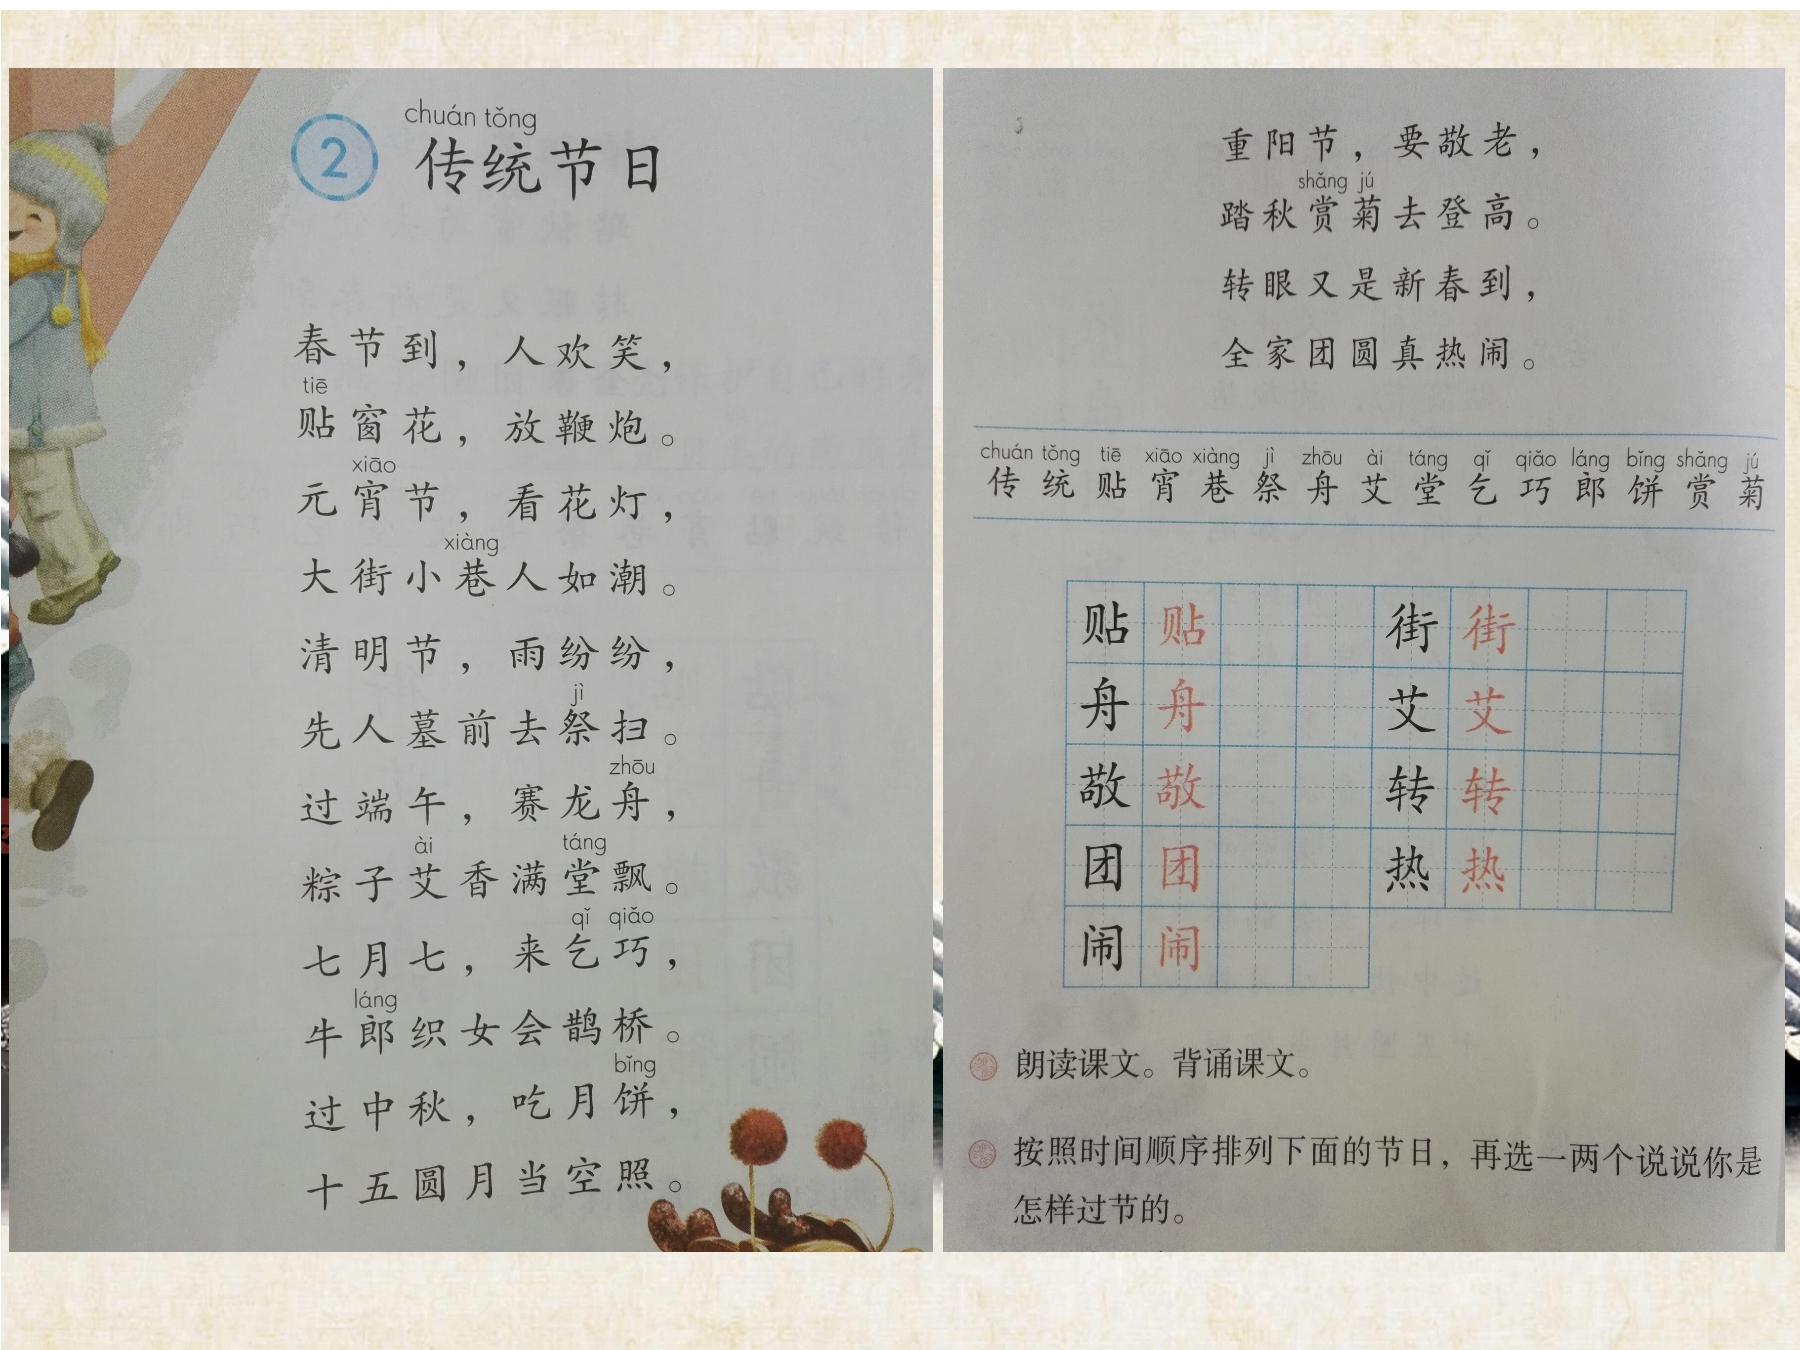 chuán tǒng
2 传统节日
春节到，人欢笑，
tiē
贴窗花，放鞭炮。
xiāo
元宵节，看花灯，
xiàng
大街小巷人如潮。
清明节，雨纷纷，
jì
先人墓前去祭扫。
zhōu
过端午，赛龙舟，
ài táng
粽子艾香满堂飘。
qǐ qiǎo
七月七，来乞巧，
láng
牛郎织女会鹊桥。
bǐng
过中秋，吃月饼，
十五圆月当空照。
重阳节，要敬老，
shǎng jú
踏秋赏菊去登高。
转眼又是新春到，
全家团圆真热闹。
chuán tǒng tiē xiāo xiàng jì zhōu ài táng qǐ qiǎo láng bǐng shǎng jú
传 统 贴 宵 巷 祭 舟 艾 堂 乞 巧 郎 饼 赏 菊
贴 贴 街 街
舟 舟 艾 艾
敬 敬 转 转
团 团 热 热
闹 闹
朗读课文。背诵课文。
按照时间顺序排列下面的节日，再选一两个说说你是
怎样过节的。